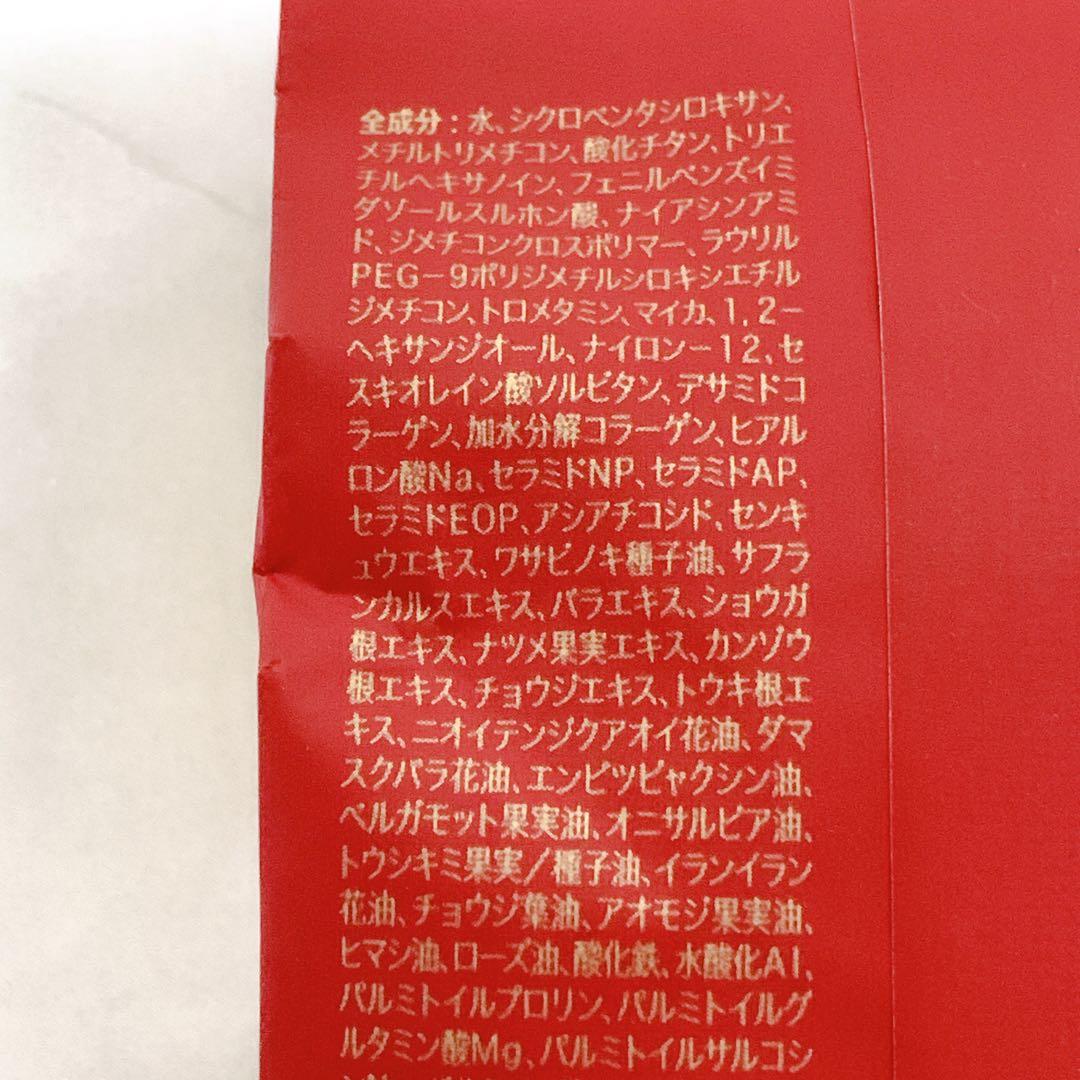 全成分：水、シクロペンタシロキサン、
メチルトリメチコン、酸化チタン、トリエ
チルヘキサノイン、フェニルベンズイミ
ダゾールスルホン酸、ナイアシンアミ
ド、ジメチコンクロスポリマー、ラウリル
PEG－9ポリジメチルシロキシエチル
ジメチコン、トロメタミン、マイカ、1，2－
ヘキサンジオール、ナイロン－12、セ
スキオレイン酸ソルビタン、デサミドコ
ラーゲン、加水分解コラーゲン、ヒアル
ロン酸Na、セラミドNP、セラミドAP、
セラミドEOP、アシアチコシド、センキ
ュウエキス、ワサビノキ種子油、サフラ
ンカルスエキス、バラエキス、ショウガ
根エキス、ナツメ果実エキス、カンゾウ
根エキス、チョウジエキス、トウキ根エ
キス、ニオイテンジクアオイ花油、ダマ
スクバラ花油、エンピツビャクシン油、
ベルガモット果実油、オニサルビア油、
トウシキミ果実／種子油、イランイラン
花油、チョウジ葉油、アオモジ果実油、
ヒマシ油、ローズ油、酸化鉄、水酸化Al、
パルミトイルプロリン、パルミトイルグ
ルタミン酸Mg、パルミトイルサルコシ